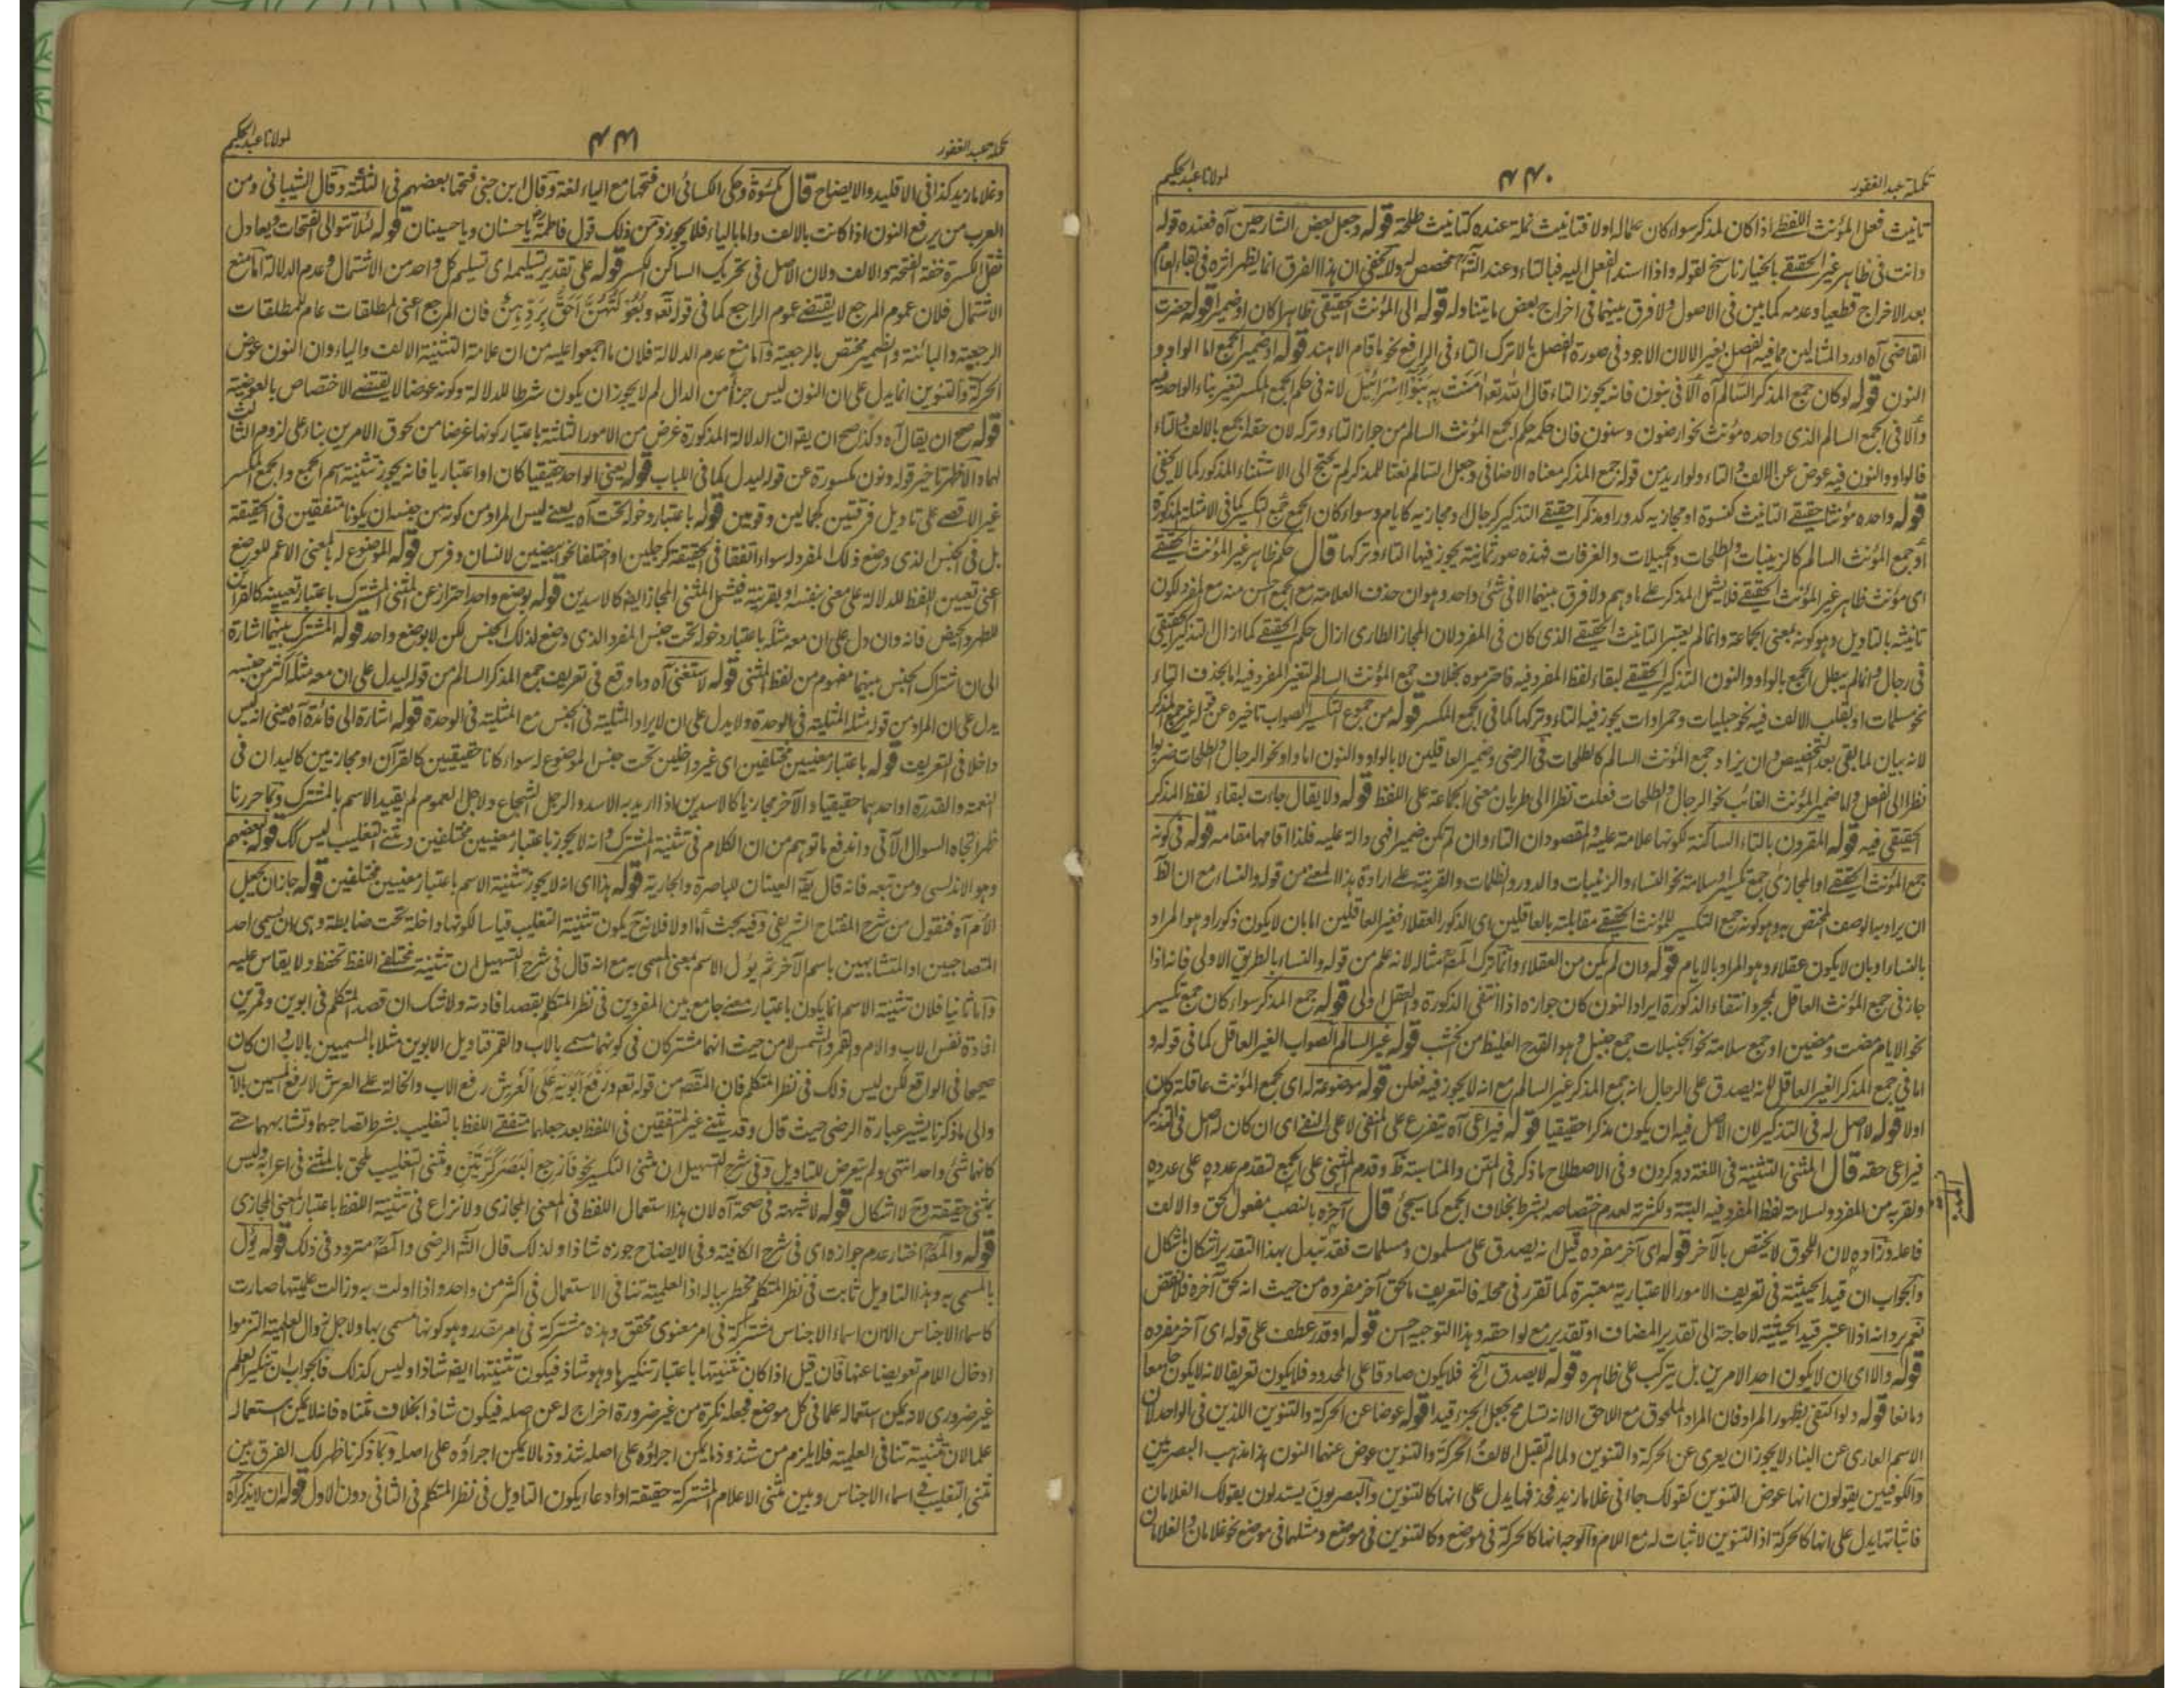 تكملة عبد الغفور
٤٤٠
لمولانا عبد الحكيم
تانيث فعل المؤنث اللفظ اذا كان لمذكر سواء كان علما له اولا فتانيث نملة عنده كتانيث طلحة قوله وجعل بعض الشارحين آه فعنده قوله
وانت فى ظاهر غير الحقيقى بالخيار ناسخ لقوله واذا اسند الفعل اليه فبالتاء وعند مخصص له ولا يخفى ان هذا الفرق انما يظهر اثره فى بقاء العام
بعد الاخراج قطعيا وعدمه كما بين فى الاصول ولا فرق بينهما فى اخراج بعض ما يتناوله قوله الى المؤنث الحقيقى ظاهرا كان او ضميرا قوله حضرت
القاضى آه اورد المثالين مما فيه الفصل بغير الا لان الاجود فى صورة الفصل بالا ترك التاء فى الرافع نحو ما قام الا هند قوله او ضمير الجمع اما الواو و
النون قوله لو كان جمع المذكر السالم آه الا فى بنون فانه يجوز التاء قال الله تعه اٰمَنَتْ بِهٖ بَنُوْا اِسْرَائِيْلَ لانه فى حكم الجمع المكسر لتغير بناء الواحد فيه
والا فى الجمع السالم الذى واحده مؤنث نحو ارضون وسنون فان حكمه حكم الجمع المؤنث السالم من جواز التاء وتركه لان حقه الجمع بالالف والتاء
فالواو والنون فيه عوض عن الالف والتاء ولو اريد من قوله جمع المذكر معناه الاضافى وجعل السالم نعتا للمذكر لم يحتج الى الاستثناء المذكور كما لا يخفى
قوله واحده مؤنثا حقيقى التانيث كنسوة او مجازيه كدور او مذكرا حقيقى التذكير كرجال او مجازيه كايام وسواء كان الجمع جمع التكسير كما فى الامثلة المذكورة
او جمع المؤنث السالم كالزينبات والطلحات والجبيلات والغرفات فهذه صور ثمانية يجوز فيها التاء وتركها قال حكم ظاهر غير المؤنث الحقيقى
اى مؤنث ظاهر غير المؤنث الحقيقى فلا يشمل المذكر على ما وهم ولا فرق بينهما الا فى شئ واحد وهو ان حذف العلامة مع الجمع احسن منه مع المفرد لكون
تانيثه بالتاويل وهو كونه بمعنى الجماعة وانما لم يعتبر التانيث الحقيقى الذى كان فى المفرد لان المجاز الطارى ازال حكم الحقيقى كما ازال التذكير الحقيقى
فى رجال وانما لم يبطل الجمع بالواو والنون التذكير الحقيقى لبقاء لفظ المفرد فيه فاحترموه بخلاف جمع المؤنث السالم لتغير المفرد فيه اما بحذف التاء
نحو مسلمات او بقلب الالف فيه نحو حبليات وحمراوات يجوز فيه التاء وتركها كما فى الجمع المكسر قوله من جموع التكسير الصواب تاخيره عن قوله غير جمع المذكر
لانه بيان لما بقى بعد التخصيص وان يزاد جمع المؤنث السالم كالطلحات فى الرضى وضمير العاقلين لا بالواو والنون اما واو نحو الرجال والطلحات ضربوا
نظرا الى العقل واما ضمير المؤنث الغائب نحو الرجال والطلحات فعلت نظرا الى طريان معنى الجماعة على اللفظ قوله ولا يقال جاءت لبقاء لفظ المذكر
الحقيقى فيه قوله المقرون بالتاء الساكنة لكونها علامة عليه والمقصود ان التاء وان لم تكن ضميرا فهى دالة عليه فلذا اقامها مقامه قوله فى كونه
جمع المؤنث الحقيقى او المجازى جمع تكسير او سلامة نحو النساء والزينبات والدور والظلمات والقرينة على ارادة هذا المعنى من قوله والنساء مع ان الظ
ان يراد بها الوصف المختص به وهو كونه جمع التكسير للمؤنث الحقيقى مقابلته بالعاقلين اى الذكور العقلاء فغير العاقلين اما بان لا يكون ذكورا وهو المراد
بالنساء او بان لا يكون عقلاء وهو المراد بالايام قوله وان لم يكن من العقلاء وانما ترك المصه مثاله لانه علم من قوله والنساء بالطريق الاولى فانه اذا
جاز فى جمع المؤنث العاقل بمجرد انتفاء الذكورة ايراد النون كان جوازه اذا انتفى الذكورة والعقل اولى قوله جمع المذكر سواء كان جمع تكسير
نحو الايام مضت ومضين او جمع سلامة نحو الجنبلات جمع جنبل وهو القدح الغليظ من الخشب قوله غير السالم الصواب الغير العاقل كما فى قوله و
اما فى جمع المذكر الغير العاقل لانه يصدق على الرجال انه جمع المذكر غير السالم مع انه لا يجوز فيه فعلن قوله موضوعة له اى لجمع المؤنث عاقلة كان
اولا قوله لا اصل له فى التذكير لان الاصل فيه ان يكون مذكرا حقيقيا قوله فيراعى آه يتفرع على المنفى لا على النفى اى ان كان له اصل فى التذكير
فيراعى حقه قال المثنى التثنية فى اللغة دو كردن وفى الاصطلاح ما ذكر فى المتن والمناسبة ظ وقدم المثنى على الجمع لتقدم عدده على عدده
المثنى
ولقربه من المفرد ولسلامة لفظ المفرد فيه البتة ولكثرته لعدم اختصاصه بشرط بخلاف الجمع كما سيجئ قال آخره بالنصب مفعول لحق والالف
فاعله وزاده لان اللحوق لا يختص بالآخر قوله اى آخر مفرده قيل انه يصدق على مسلمون ومسلمات فقد تبدل بهذا التقدير اشكال باشكال
والجواب ان قيد الحيثية فى تعريف الامور الاعتبارية معتبرة كما تقرر فى محله فالتعريف ما لحق آخر مفرده من حيث انه لحق آخره فلا نقض
نعم يرد انه اذا اعتبر قيد الحيثية لا حاجة الى تقدير المضاف او تقدير مع لواحقه وهذا التوجيه حسن قوله او قدر عطف على قوله اى آخر مفرده
قوله والا اى ان لا يكون احد الامرين بل يترك على ظاهره قوله لا يصدق الخ فلا يكون صادقا على المحدود فلا يكون تعريفا لانه لا يكون جامعا
ومانعا قوله ولو اكتفى بظهور المراد فان المراد الملحوق مع اللاحق الا انه تسامح بجعل الجزء قيدا قوله عوضا عن الحركة والتنوين اللذين فى الواحد لان
الاسم العارى عن البناء لا يجوز ان يعرى عن الحركة والتنوين ولما لم تقبل الالف الحركة والتنوين عوض عنهما النون هذا مذهب البصريين
والكوفيين يقولون انها عوض التنوين كقولك جاءنى غلاما زيد فحذفها يدل على انها كالتنوين والبصريون يستدلون بقولك الغلامان
فاثباتها يدل على انها كالحركة اذ التنوين لا ثبات له مع اللام والوجه انها كالحركة فى موضع وكالتنوين فى موضع ومثلهما فى موضع نحو غلامان والغلامان
تكملة عبد الغفور
٤٤١
لمولانا عبد الحكيم
وغلاما زيد كذا فى الاقليد والايضاح قال مكسورة وحكى الكسائى ان فتحها مع الياء لغة وقال ابن جنى فتحها بعضهم فى الثلثة وقال الشيبانى ومن
العرب من يرفع النون اذا كانت بالالف واما بالياء فلا يجوز ومن ذلك قول فاطمة يا حسنان ويا حسينان قوله لئلا تتوالى الفتحات ويعادل
ثقل الكسرة خفة الفتحة والالف ولان الاصل فى تحريك الساكن الكسر قوله على تقدير تسليمه اى تسليم كل واحد من الاشتمال وعدم الدلالة اما منع
الاشتمال فلان عموم المرجع لا يقتضى عموم الراجع كما فى قوله تعه وَبُعُوْلَتُهُنَّ اَحَقُّ بِرَدِّهِنَّ فان المرجع اعنى المطلقات عام للمطلقات
الرجعية والبائنة والضمير مختص بالرجعية واما منع عدم الدلالة فلان ما اجمعوا عليه من ان علامة التثنية الالف والياء وان النون عوض
الحركة والتنوين انما يدل على ان النون ليس جزأ من الدال لم لا يجوز ان يكون شرطا للدلالة وكونه عوضا لا يقتضى الاختصاص بالعوضية
قوله صح ان يقال آه وكذا صح ان يقه ان الدلالة المذكورة غرض من الامور الثلثة باعتبار كونها غرضا من لحوق الامرين بناء على لزوم الثالث
لهما والاظهر تاخير قوله ونون مكسورة عن قوله ليدل كما فى اللباب قوله يعنى الواحد حقيقيا كان او اعتباريا فانه يجوز تثنية اسم الجمع والجمع المكسر
غير الاقصى على تاويل فرقتين كجمالين وقومين قوله باعتبار دخوله تحت آه يعنى ليس المراد من كونه من جنسه ان يكونا متفقين فى الحقيقة
بل فى الجنس الذى وضع ذلك المفرد له سواء اتفقا فى الحقيقة كرجلين او اختلفا نحو ابيضين لانسان وفرس قوله الموضوع له بالمعنى الاعم للوضع
اعنى تعيين اللفظ للدلالة على معنى بنفسه او بقرينة فيشمل المثنى المجازى ايضا كالاسدين قوله بوضع واحد احتراز عن المثنى المشترك باعتبار تعيينه كالقرأين
للطهر والحيض فانه وان دل على ان معه مثله باعتبار دخوله تحت جنس المفرد الذى وضع لذلك الجنس لكن لا بوضع واحد قوله المشترك بينهما اشارة
الى ان اشتراك الجنس بينهما مفهوم من لفظ المثنى قوله لاستغنى آه وما وقع فى تعريف جمع المذكر السالم من قوله ليدل على ان معه مثله اكثر من جنسه
يدل على ان المراد من قوله مثله المثلية فى الوحدة ولا يدل على ان لا يراد المثلية فى الجنس مع المثلية فى الوحدة قوله اشارة الى فائدة آه يعنى انه ليس
داخلا فى التعريف قوله باعتبار معنيين مختلفين اى غير داخلين تحت جنس الموضوع له سواء كانا حقيقيين كالقرآن او مجازيين كاليدان فى
النعمة والقدرة او احدهما حقيقيا والآخر مجازيا كالاسدين اذا اريد به الاسد والرجل الشجاع ولاجل العموم لم يقيد الاسم بالمشترك وبما حررنا
ظهر اتجاه السوال الآتى واندفع ما توهم من ان الكلام فى تثنية المشترك وانه لا يجوز باعتبار معنيين مختلفين ومثنى التغليب ليس كك قوله لبعضهم
وهو الاندلسى ومن تبعه فانه قال يقه العينان للباصرة والجارية قوله هذا اى انه لا يجوز تثنية الاسم باعتبار معنيين مختلفين قوله جاز ان يجعل
الام آه فنقول من شرح المفتاح الشريفى وفيه بحث أما اولا فلانه ح يكون تثنية التغليب قياسا لكونها داخلة تحت ضابطة وهى ان يسمى احد
المتصاحبين او المتشابهين باسم الآخر ثم يؤل الاسم بمعنى المسمى به مع انه قال فى شرح التسهيل ان تثنية مختلفى اللفظ تحفظ ولا يقاس عليه
واما ثانيا فلان تثنية الاسم انما يكون باعتبار معنى جامع بين المفردين فى نظر المتكلم يقصد افادته ولا شك ان قصد المتكلم فى ابوين وقمرين
افادة نفس الاب والام والقمر والشمس لا من حيث انهما مشتركان فى كونهما مسمى بالاب والقمر فتاويل الابوين مثلا بالمسميين بالاب وان كان
صحيحا فى الواقع لكن ليس ذلك فى نظر المتكلم فان المقصه من قوله تعه وَرَفَعَ اَبَوَيْهِ عَلَى الْعَرْشِ رفع الاب والخالة على العرش لا رفع المسمين بالاب
والى ما ذكرنا يشير عبارة الرضى حيث قال وقد يثنى غير المتفقين فى اللفظ بعد جعلهما متفقى اللفظ بالتغليب بشرط تصاحبهما وتشابههما حتى
كانهما شئ واحد انتهى ولم يتعرض للتاويل وفى شرح التسهيل ان مثنى التكسير نحو فَارْجِعِ الْبَصَرَ كَرَّتَيْنِ ومثنى التغليب ملحق بالمثنى فى اعرابه وليس
بمثنى حقيقة وح لا اشكال قوله لا شبهة فى صحته آه لان هذا استعمال اللفظ فى المعنى المجازى ولا نزاع فى تثنية اللفظ باعتبار المعنى المجازى
قوله والمصه اختار عدم جوازه اى فى شرح الكافية وفى الايضاح جوزه شاذا ولذلك قال الشه الرضى والمصه متردد فى ذلك قوله يؤل
بالمسمى به وهذا التاويل ثابت فى نظر المتكلم مخطر بباله اذ العلمية تنافى الاستعمال فى اكثر من واحد واذا اولت به وزالت علميتها صارت
كاسماء الاجناس الا ان اسماء الاجناس مشتركة فى امر معنوى محقق وهذه مشتركة فى امر مقدر وهو كونها مسمى بها ولاجل زوال العلمية التزموا
ادخال اللام تعويضا عنها فان قيل اذا كان تثنيتها باعتبار تنكيرها وهو شاذ فيكون تثنيتها ايضه شاذا وليس كذلك فالجواب ان تنكير العلم
غير ضرورى لانه يمكن استعماله علما فى كل موضع فجعله نكرة من غير ضرورة اخراج له عن اصله فيكون شاذا بخلاف مثناه فانه لا يمكن استعماله
علما لان تثنيته تنافى العلمية فلا يلزم من شذوذ ما يمكن اجراؤه على اصله شذوذ ما لا يمكن اجراؤه على اصله وبما ذكرنا ظهر لك الفرق بين
مثنى التغليب فى اسماء الاجناس وبين مثنى الاعلام المشتركة حقيقة او ادعاء ليكون التاويل فى نظر المتكلم فى الثانى دون الاول قوله ان لا يذكر آه